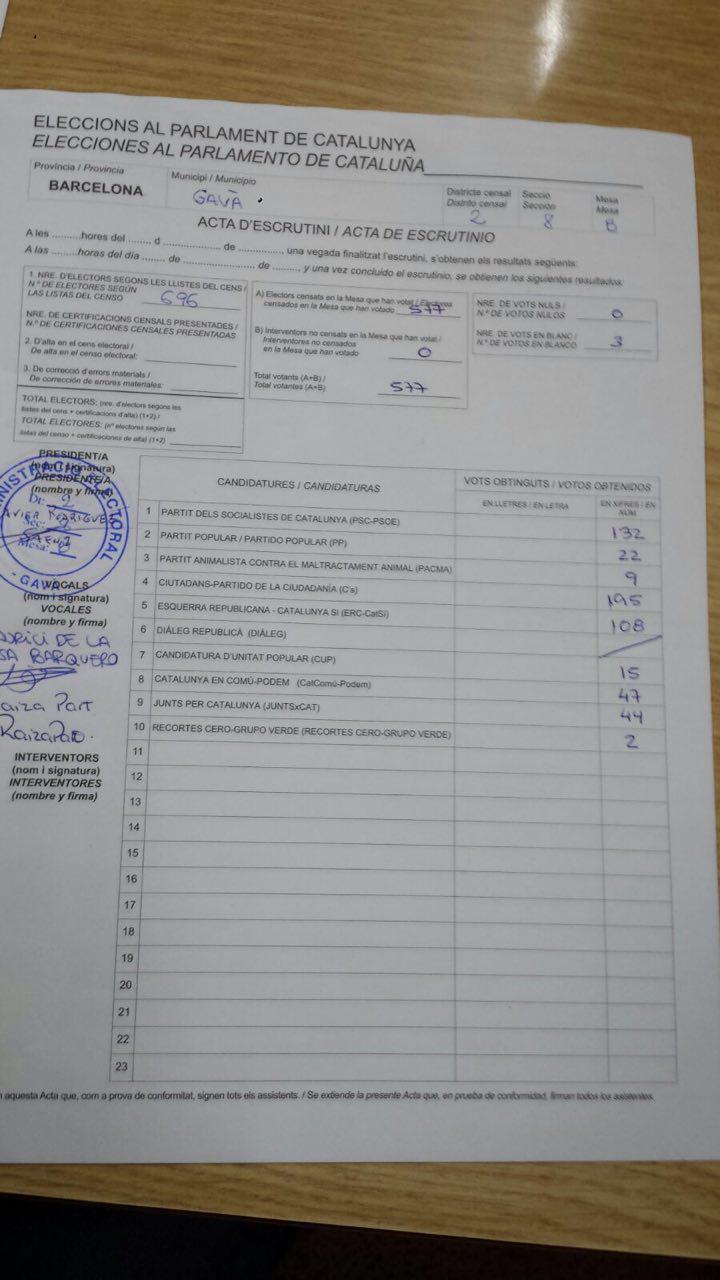 ELECCIONS AL PARLAMENT DE CATALUNYA
ELECCIONES AL PARLAMENTO DE CATALUÑA
Província / Provincia
BARCELONA
Municipi / Municipio
GAVÀ
Districte censal
Distrito censal
2
Secció
Sección
8
Mesa
Mesa
B
ACTA D'ESCRUTINI / ACTA DE ESCRUTINIO
A les ..........hores del ........ d .................... de .............., una vegada finalitzat l'escrutini, s'obtenen els resultats següents:
A las ..........horas del día ........ de .................... de ........., y una vez concluido el escrutinio, se obtienen los siguientes resultados:
1. NRE. D'ELECTORS SEGONS LES LLISTES DEL CENS /
N.º DE ELECTORES SEGÚN
LAS LISTAS DEL CENSO 696
NRE. DE CERTIFICACIONS CENSALS PRESENTADES /
N.º DE CERTIFICACIONES CENSALES PRESENTADAS
2. D'alta en el cens electoral /
De alta en el censo electoral:
3. De correcció d'errors materials /
De corrección de errores materiales:
TOTAL ELECTORS: (nre. d'electors segons les
llistes del cens + certificacions d'alta) (1+2) /
TOTAL ELECTORES: (nº electores según las
listas del censo + certificaciones de alta) (1+2)
A) Electors censats en la Mesa que han votat / Electores
censados en la Mesa que han votado 577
B) Interventors no censats en la Mesa que han votat /
Interventores no censados
en la Mesa que han votado 0
Total votants (A+B) /
Total votantes (A+B) 577
NRE. DE VOTS NULS /
N.º DE VOTOS NULOS 0
NRE. DE VOTS EN BLANC /
N.º DE VOTOS EN BLANCO 3
PRESIDENT/A
(nom i signatura)
PRESIDENTE/A
(nombre y firma)
VOCALS
(nom i signatura)
VOCALES
(nombre y firma)
DE LA
BARQUERO
aiza Part
INTERVENTORS
(nom i signatura)
INTERVENTORES
(nombre y firma)
CANDIDATURES / CANDIDATURAS
VOTS OBTINGUTS / VOTOS OBTENIDOS
EN LLETRES / EN LETRA
EN XIFRES / EN
NÚM
1 PARTIT DELS SOCIALISTES DE CATALUNYA (PSC-PSOE) 132
2 PARTIT POPULAR / PARTIDO POPULAR (PP) 22
3 PARTIT ANIMALISTA CONTRA EL MALTRACTAMENT ANIMAL (PACMA) 9
4 CIUTADANS-PARTIDO DE LA CIUDADANÍA (C's) 195
5 ESQUERRA REPUBLICANA - CATALUNYA SI (ERC-CatSí) 108
6 DIÀLEG REPUBLICÀ (DIÀLEG)
7 CANDIDATURA D'UNITAT POPULAR (CUP) 15
8 CATALUNYA EN COMÚ-PODEM (CatComú-Podem) 47
9 JUNTS PER CATALUNYA (JUNTSxCAT) 44
10 RECORTES CERO-GRUPO VERDE (RECORTES CERO-GRUPO VERDE) 2
11
12
13
14
15
16
17
18
19
20
21
22
23
aquesta Acta que, com a prova de conformitat, signen tots els assistents. / Se extiende la presente Acta que, en prueba de conformidad, firman todos los asistentes.